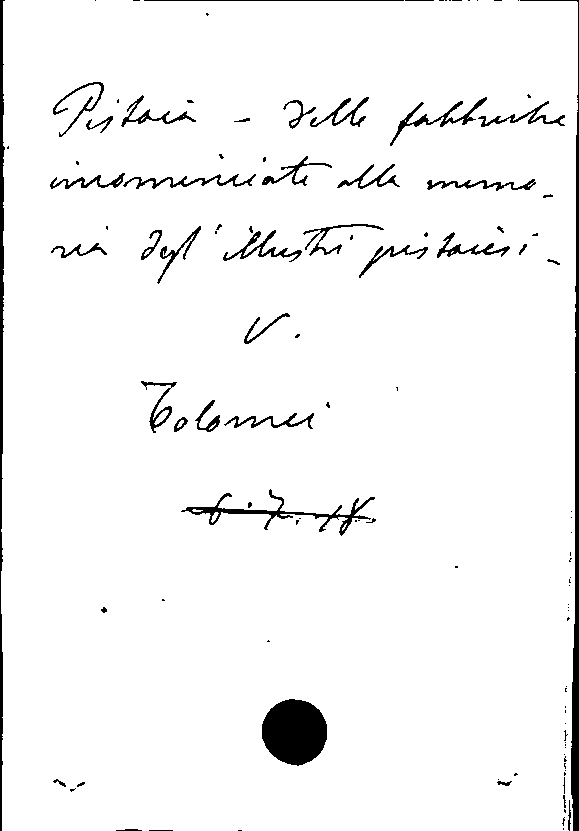 Pistoia - Delle fabbriche
incominciate alla memo-
ria degl' illustri pistoiesi -
V.
Tolomei
6.7.18